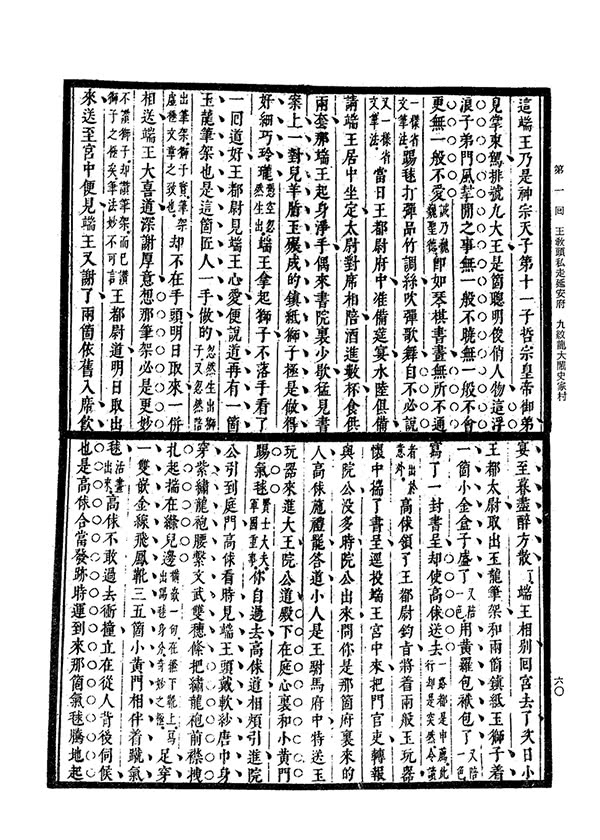 第一回　王教頭私走延安府　九紋龍大鬧史家村
六〇
這端王乃是神宗天子第十一子哲宗皇帝御弟
見掌東駕排號九大王是箇聰明俊俏人物這浮
浪子弟門風幫閒之事無一般不曉無一般不會
更無一般不愛即如琴棋書畫無所不通
一樣省文筆法踢毬打彈品竹調絲吹彈歌舞自不必說
又一樣省文筆法當日王都尉府中准備筵宴水陸俱備
請端王居中坐定太尉對席相陪酒進數杯食供
兩套那端王起身淨手偶來書院裏少歇猛見書
案上一對兒羊脂玉碾成的鎮紙獅子極是做得
好細巧玲瓏憑空忽然生出端王拿起獅子不落手看了
一回道好王都尉見端王心愛便說道再有一箇
玉龍筆架也是這箇匠人一手做的忽然生出獅子又忽然陪
出筆架獅子實筆架虛極文章之致也却不在手頭明日取來一併
相送端王大喜道深謝厚意想那筆架必是更妙
不讚獅子却讚筆架而已讚獅子之極矣筆法妙不可言王都尉道明日取出
來送至宮中便見端王又謝了兩箇依舊入席飲
宴至暮盡醉方散端王相別回宮去了次日小
王都太尉取出玉龍筆架和兩箇鎮紙玉獅子着
一箇小金盒子盛了又陪一色用黃羅包袱包了又陪一色
寫了一封書呈却使高俅送去一路都是串薦此行却是突然令讀
者出於意外高俅領了王都尉鈞旨將着兩般玉玩器
懷中揣了書呈逕投端王宮中來把門官吏轉報
與院公没多時院公出來問你是那箇府裏來的
人高俅施禮罷答道小人是王駙馬府中特送玉
玩器來進大王院公道殿下在庭心裏和小黃門
踢氣毬賢士大夫軍國重務你自過去高俅道相煩引進院
公引到庭門高俅看時見端王頭戴軟紗唐巾身
穿紫繡龍袍腰繫文武雙穗絛把繡龍袍前襟拽
扎起揣在絛兒邊足穿
一雙嵌金線飛鳳靴三五箇小黃門相伴着蹴氣
毬活畫出來高俅不敢過去衝撞立在從人背後伺候
也是高俅合當發跡時運到來那箇氣毬騰地起